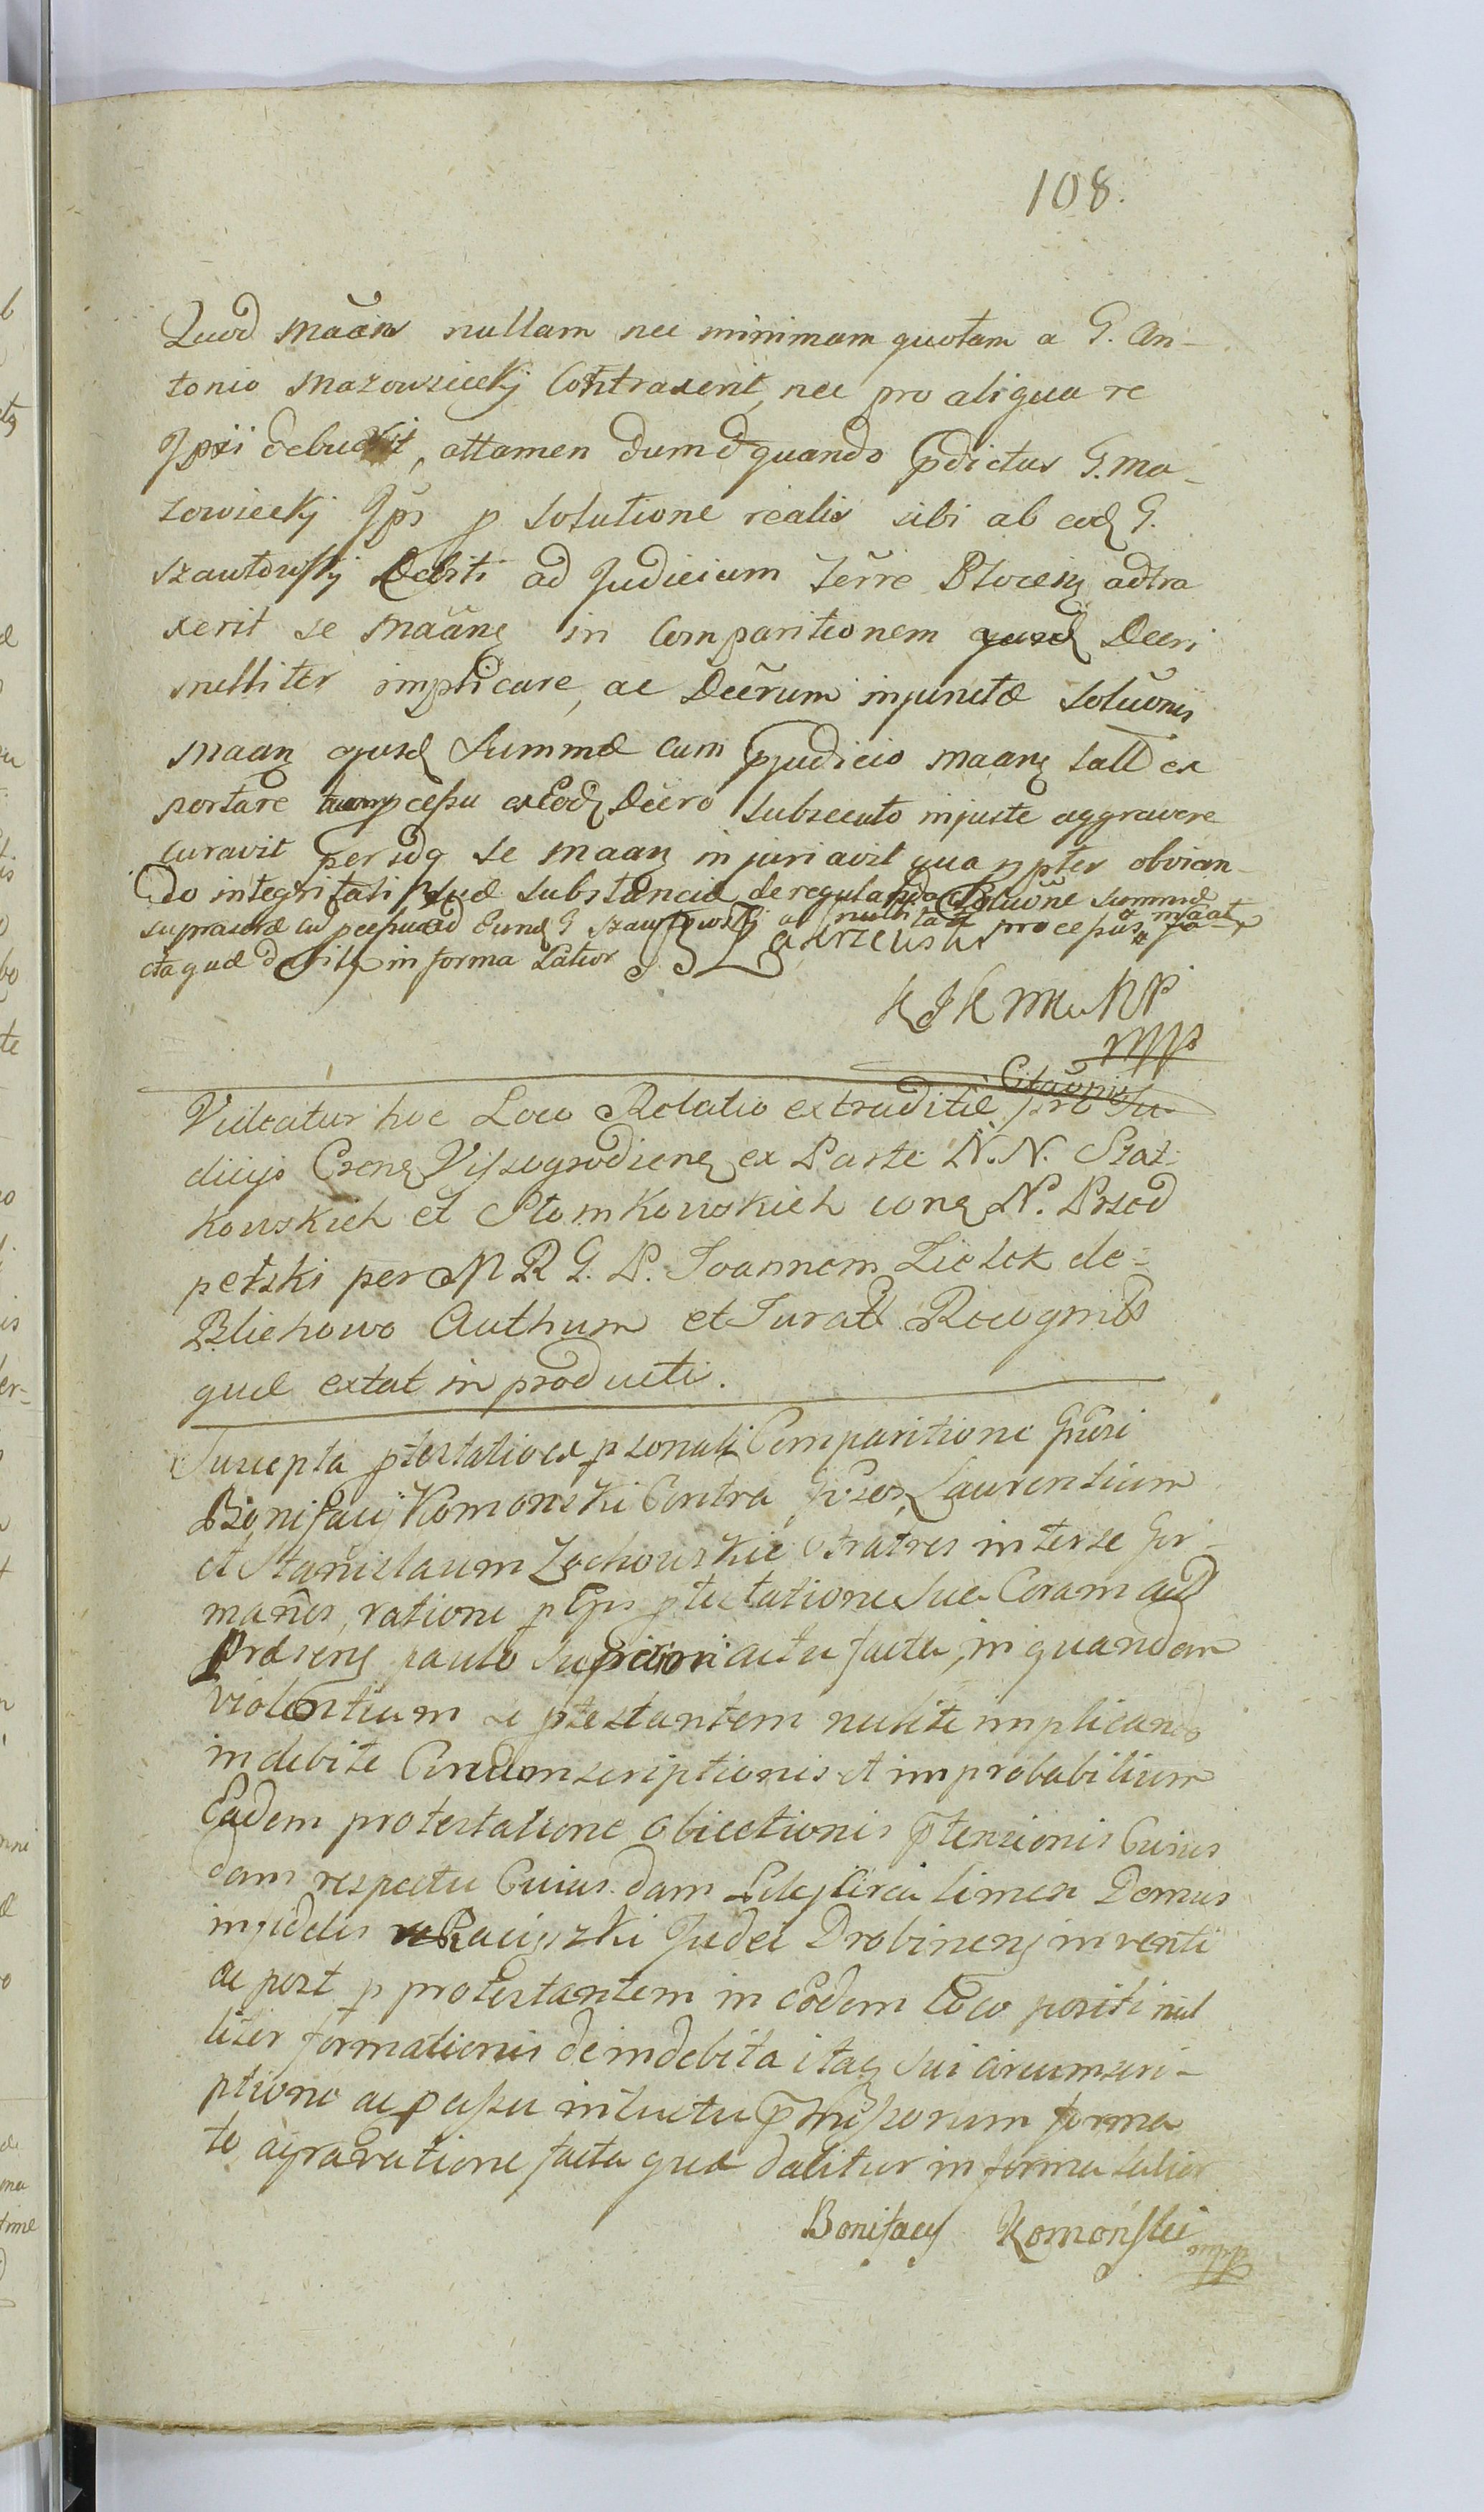 108.
Quod Maãns nullam nec minimam quotam a G. An-
tonio Mazowiecky Contraxerit, nec pro aliqua re
Jpsi debuerit, attamen dum & quando p̃dictus G. Ma-
zowiecky Jps̃ p solutione realis sibi ab eod G.
Szautowsky Debiti ad Judicium Terr̃e Plocens adtra
xerit se Maãns in Comparitionem ejusd Decri
nulliter implicare, ac Decr̃um injunctæ Soluõnis
Maans ejusd Summæ cum p̃judicio Maans tall ex
portare processu ex Eod Decro subsecuto injuste aggravere
curavit per idq se Maans injuriavit qua ppter obvian-
do integritati suæ substanciæ de regulanda Soluõne summæ
suprascræ ad Eund G Szautowski ac nullitate processus Maãt fa-
cta quæ dabitr in forma Latior Zakrzewski
KJK MKu PP
mpp
Videatur hoc Loco Relatio extraditæ Citaõnis pro Ju-
dicijs Csens Vyszogrodiens ex Parte N.N. Stat-
kowskich et Słomkowskich cons N. Przed
petski per M R G. P. Joannem Zielek de =
Blichowo Authum et Juratt Recognit
quæ extat in producti.
Suscepta p̃testatio ex psonali Comparitione Gnosi
Bonifacij Komonski Contra Gnosos Laurentium
et Stanislaum Zochowskie fratres inter se Ger-
manos, ratione p Eos p̃testatione sua Coram act
Præsens paulo superiori actu facta, in quandam
violentiam se p̃testantem nullite implicando
indebite Circumscriptionis et improbabilium
Eadem protestatione Obiectionis p̃tensionis Cuius
dam respectu Cuiusdam circa limen Domus
infidelis Raciąszki Judei Drobinens inventi
ac post p protestantem in Eodem Loco positi nul
liter formationis de indebita itaq sui circumscri-
ptione ac pcessu intuitu p̃missorum forma
to agravatione facta quæ dabitur in forma latior
Bonifacy Komoński mpp